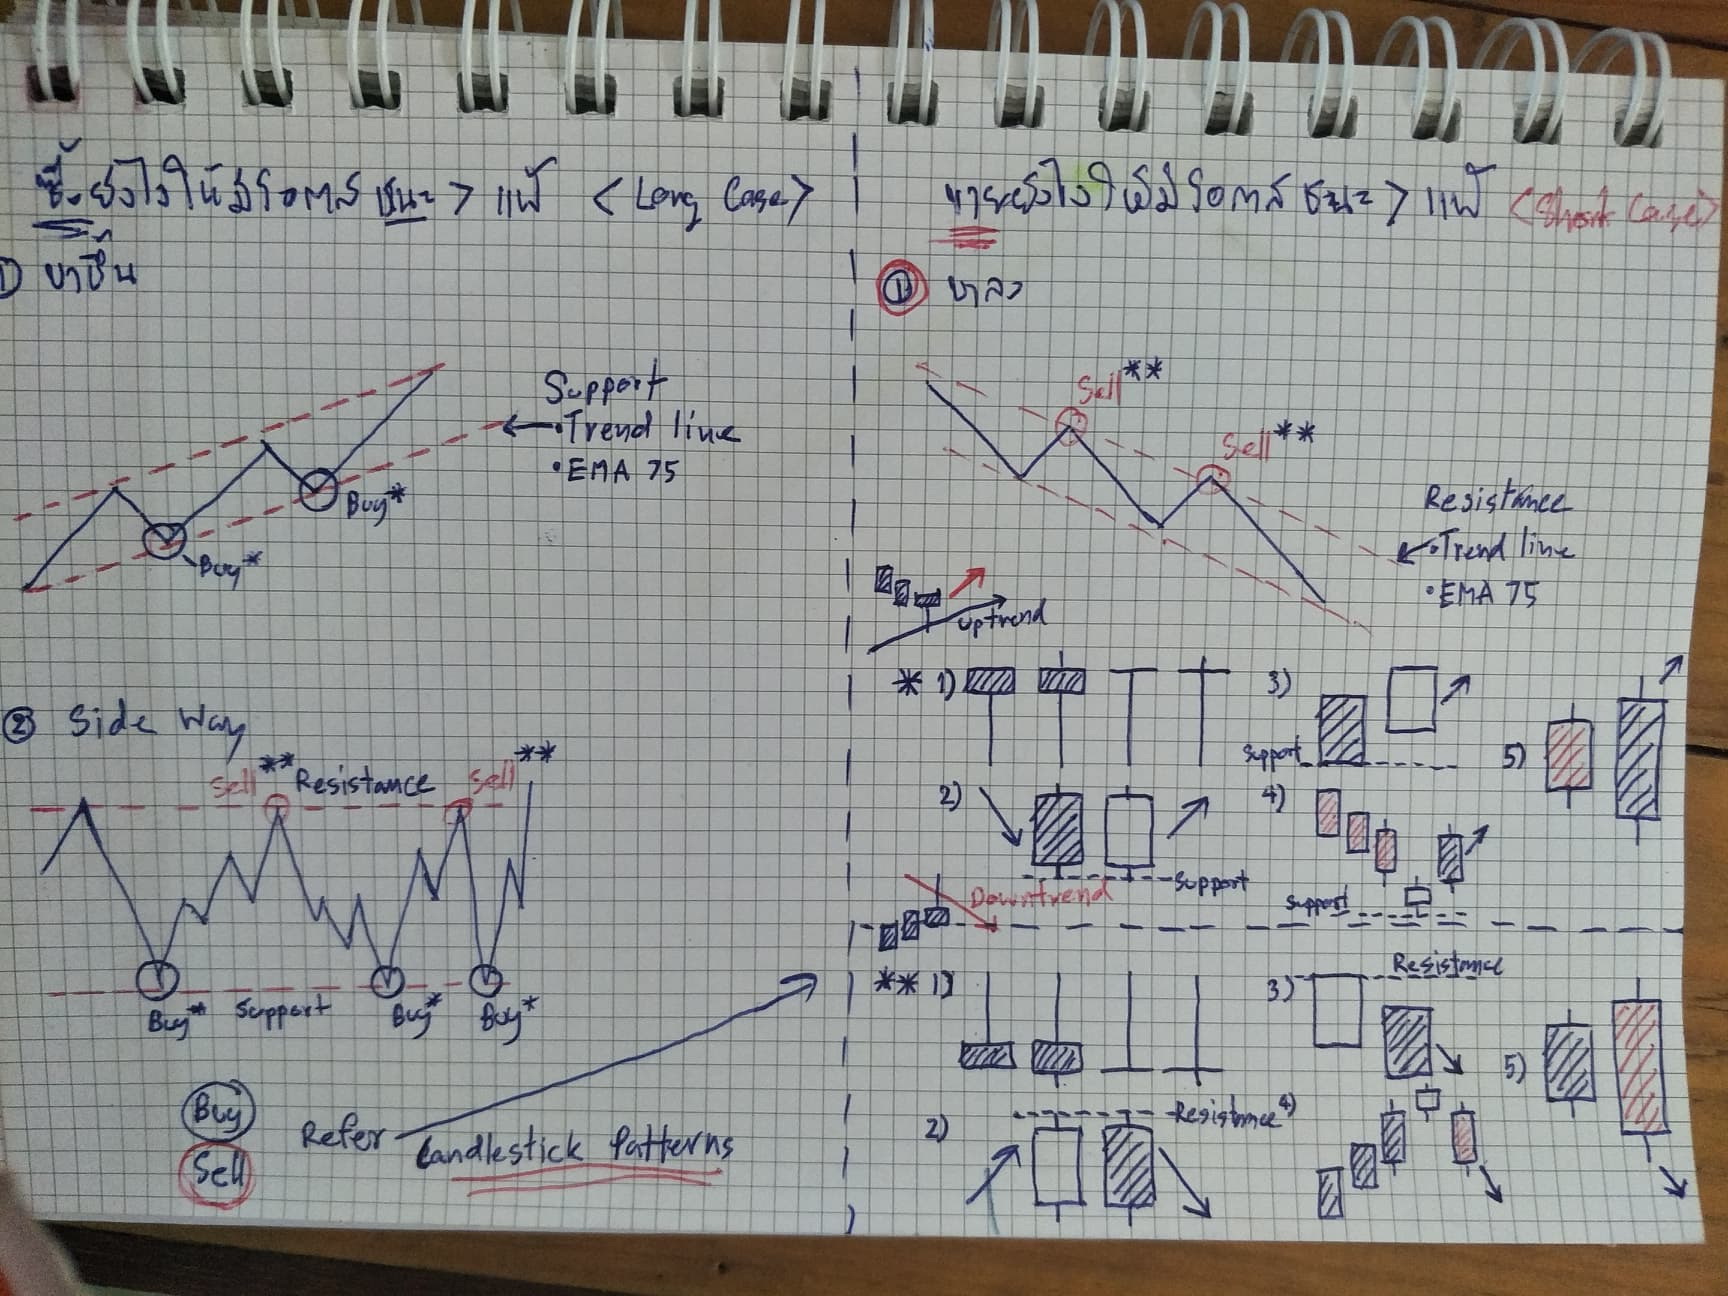 ซื้อยังไงให้มีโอกาส ชนะ > แพ้ <Long Case>
① ขาขึ้น
Support
• Trend line
• EMA 75
Buy*
Buy*
② Side Way
Sell** Resistance Sell**
Buy* Support Buy* Buy*
Buy
Sell
Refer Candlestick Patterns
ขายยังไงให้มีโอกาส ชนะ > แพ้ <Short Case>
① ขาลง
Sell**
Sell**
Resistance
• Trend line
• EMA 75
Uptrend
* 1)
3)
Support
5)
2)
Support
4)
Support
Downtrend
** 1)
3) Resistance
5)
2) Resistance
4)